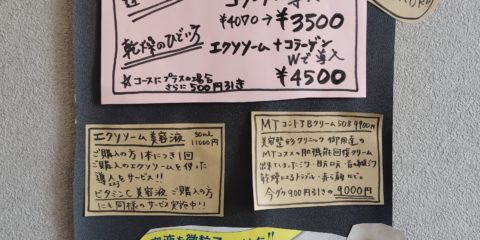 ¥4070→¥3500
乾燥のひどい方
エクソソーム+コラーゲン
Wで導入
¥4500
☆コースにプラスの場合
さらに500円引き
エクソソーム美容液 30ml
11000円
ご購入の方1本につき1回
ご購入のエクソソームを使った
導入をサービス!!
ビタミンC美容液ご購入の方
にも同様のサービス実施中!!
MTコントアBクリーム 50g 9900円
美容整形クリニック御用達の
MTコスメの肌機能回復クリーム
乾燥によるトラブル・赤ら顔などに
今なら900円引きの9000円